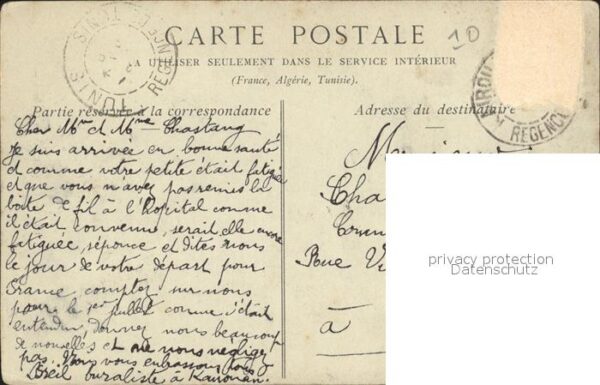 CARTE POSTALE
A UTILISER SEULEMENT DANS LE SERVICE INTÉRIEUR
(France, Algérie, Tunisie).
10
TUNIS
TUNIS
RÉGENCE
RÉGENCE
Partie réservée à la correspondance
Cher Mr et Mme Chastang
Je suis arrivée en bonne santé
et comme votre petite était fatigué
et que vous n'avez pas remis la
boîte de fil à l'Hopital comme
il était convenu, serait elle encore
fatiguée, réponce et dites nous
le jour de votre départ pour
France comptez sur nous
pour le 1er juillet comme s'était
entendu, donnez nous beaucoup
de nouvelles et ne nous négligez
pas. Nous vous embrassons tous
Breil buraliste à Kairouan.
Adresse du destinataire
Monsieur
Cha
Rue Vi
à
privacy protection
Datenschutz